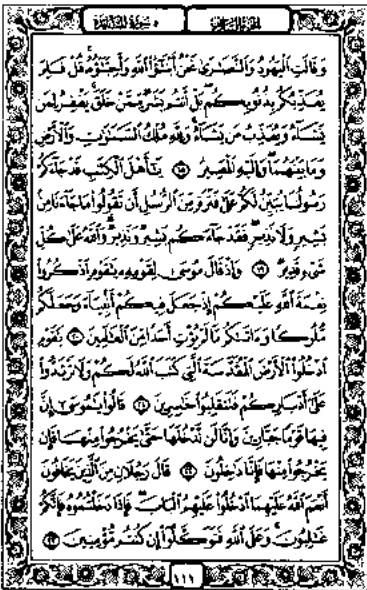 الجزء السادس ٥ سورة المائدة
وَقَالَتِ ٱلْيَهُودُ وَٱلنَّصَٰرَىٰ نَحْنُ أَبْنَٰٓؤُا۟ ٱللَّهِ وَأَحِبَّٰٓؤُهُۥ قُلْ فَلِمَ
يُعَذِّبُكُم بِذُنُوبِكُم بَلْ أَنتُم بَشَرٌ مِّمَّنْ خَلَقَ يَغْفِرُ لِمَن
يَشَآءُ وَيُعَذِّبُ مَن يَشَآءُ وَلِلَّهِ مُلْكُ ٱلسَّمَٰوَٰتِ وَٱلْأَرْضِ
وَمَا بَيْنَهُمَا وَإِلَيْهِ ٱلْمَصِيرُ ١٨ يَٰٓأَهْلَ ٱلْكِتَٰبِ قَدْ جَآءَكُمْ
رَسُولُنَا يُبَيِّنُ لَكُمْ عَلَىٰ فَتْرَةٍ مِّنَ ٱلرُّسُلِ أَن تَقُولُوا۟ مَا جَآءَنَا مِنۢ
بَشِيرٍ وَلَا نَذِيرٍ فَقَدْ جَآءَكُم بَشِيرٌ وَنَذِيرٌ وَٱللَّهُ عَلَىٰ كُلِّ
شَىْءٍ قَدِيرٌ ١٩ وَإِذْ قَالَ مُوسَىٰ لِقَوْمِهِۦ يَٰقَوْمِ ٱذْكُرُوا۟
نِعْمَةَ ٱللَّهِ عَلَيْكُمْ إِذْ جَعَلَ فِيكُمْ أَنۢبِيَآءَ وَجَعَلَكُم
مُّلُوكًا وَءَاتَىٰكُم مَّا لَمْ يُؤْتِ أَحَدًا مِّنَ ٱلْعَٰلَمِينَ ٢٠ يَٰقَوْمِ
ٱدْخُلُوا۟ ٱلْأَرْضَ ٱلْمُقَدَّسَةَ ٱلَّتِى كَتَبَ ٱللَّهُ لَكُمْ وَلَا تَرْتَدُّوا۟
عَلَىٰٓ أَدْبَارِكُمْ فَتَنقَلِبُوا۟ خَٰسِرِينَ ٢١ قَالُوا۟ يَٰمُوسَىٰٓ إِنَّ
فِيهَا قَوْمًا جَبَّارِينَ وَإِنَّا لَن نَّدْخُلَهَا حَتَّىٰ يَخْرُجُوا۟ مِنْهَا فَإِن
يَخْرُجُوا۟ مِنْهَا فَإِنَّا دَٰخِلُونَ ٢٢ قَالَ رَجُلَانِ مِنَ ٱلَّذِينَ يَخَافُونَ
أَنْعَمَ ٱللَّهُ عَلَيْهِمَا ٱدْخُلُوا۟ عَلَيْهِمُ ٱلْبَابَ فَإِذَا دَخَلْتُمُوهُ فَإِنَّكُمْ
غَٰلِبُونَ وَعَلَى ٱللَّهِ فَتَوَكَّلُوٓا۟ إِن كُنتُم مُّؤْمِنِينَ ٢٣
١١١